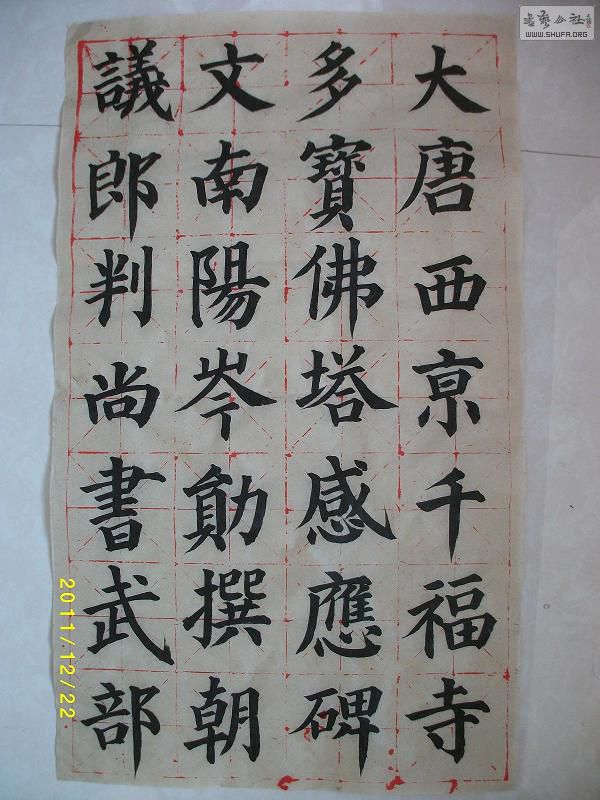 大唐西京千福寺
多寶佛塔感應碑
文南陽岑勛撰朝
議郎判尚書武部
2011/12/22
书艺公社
WWW.SHUFA.ORG